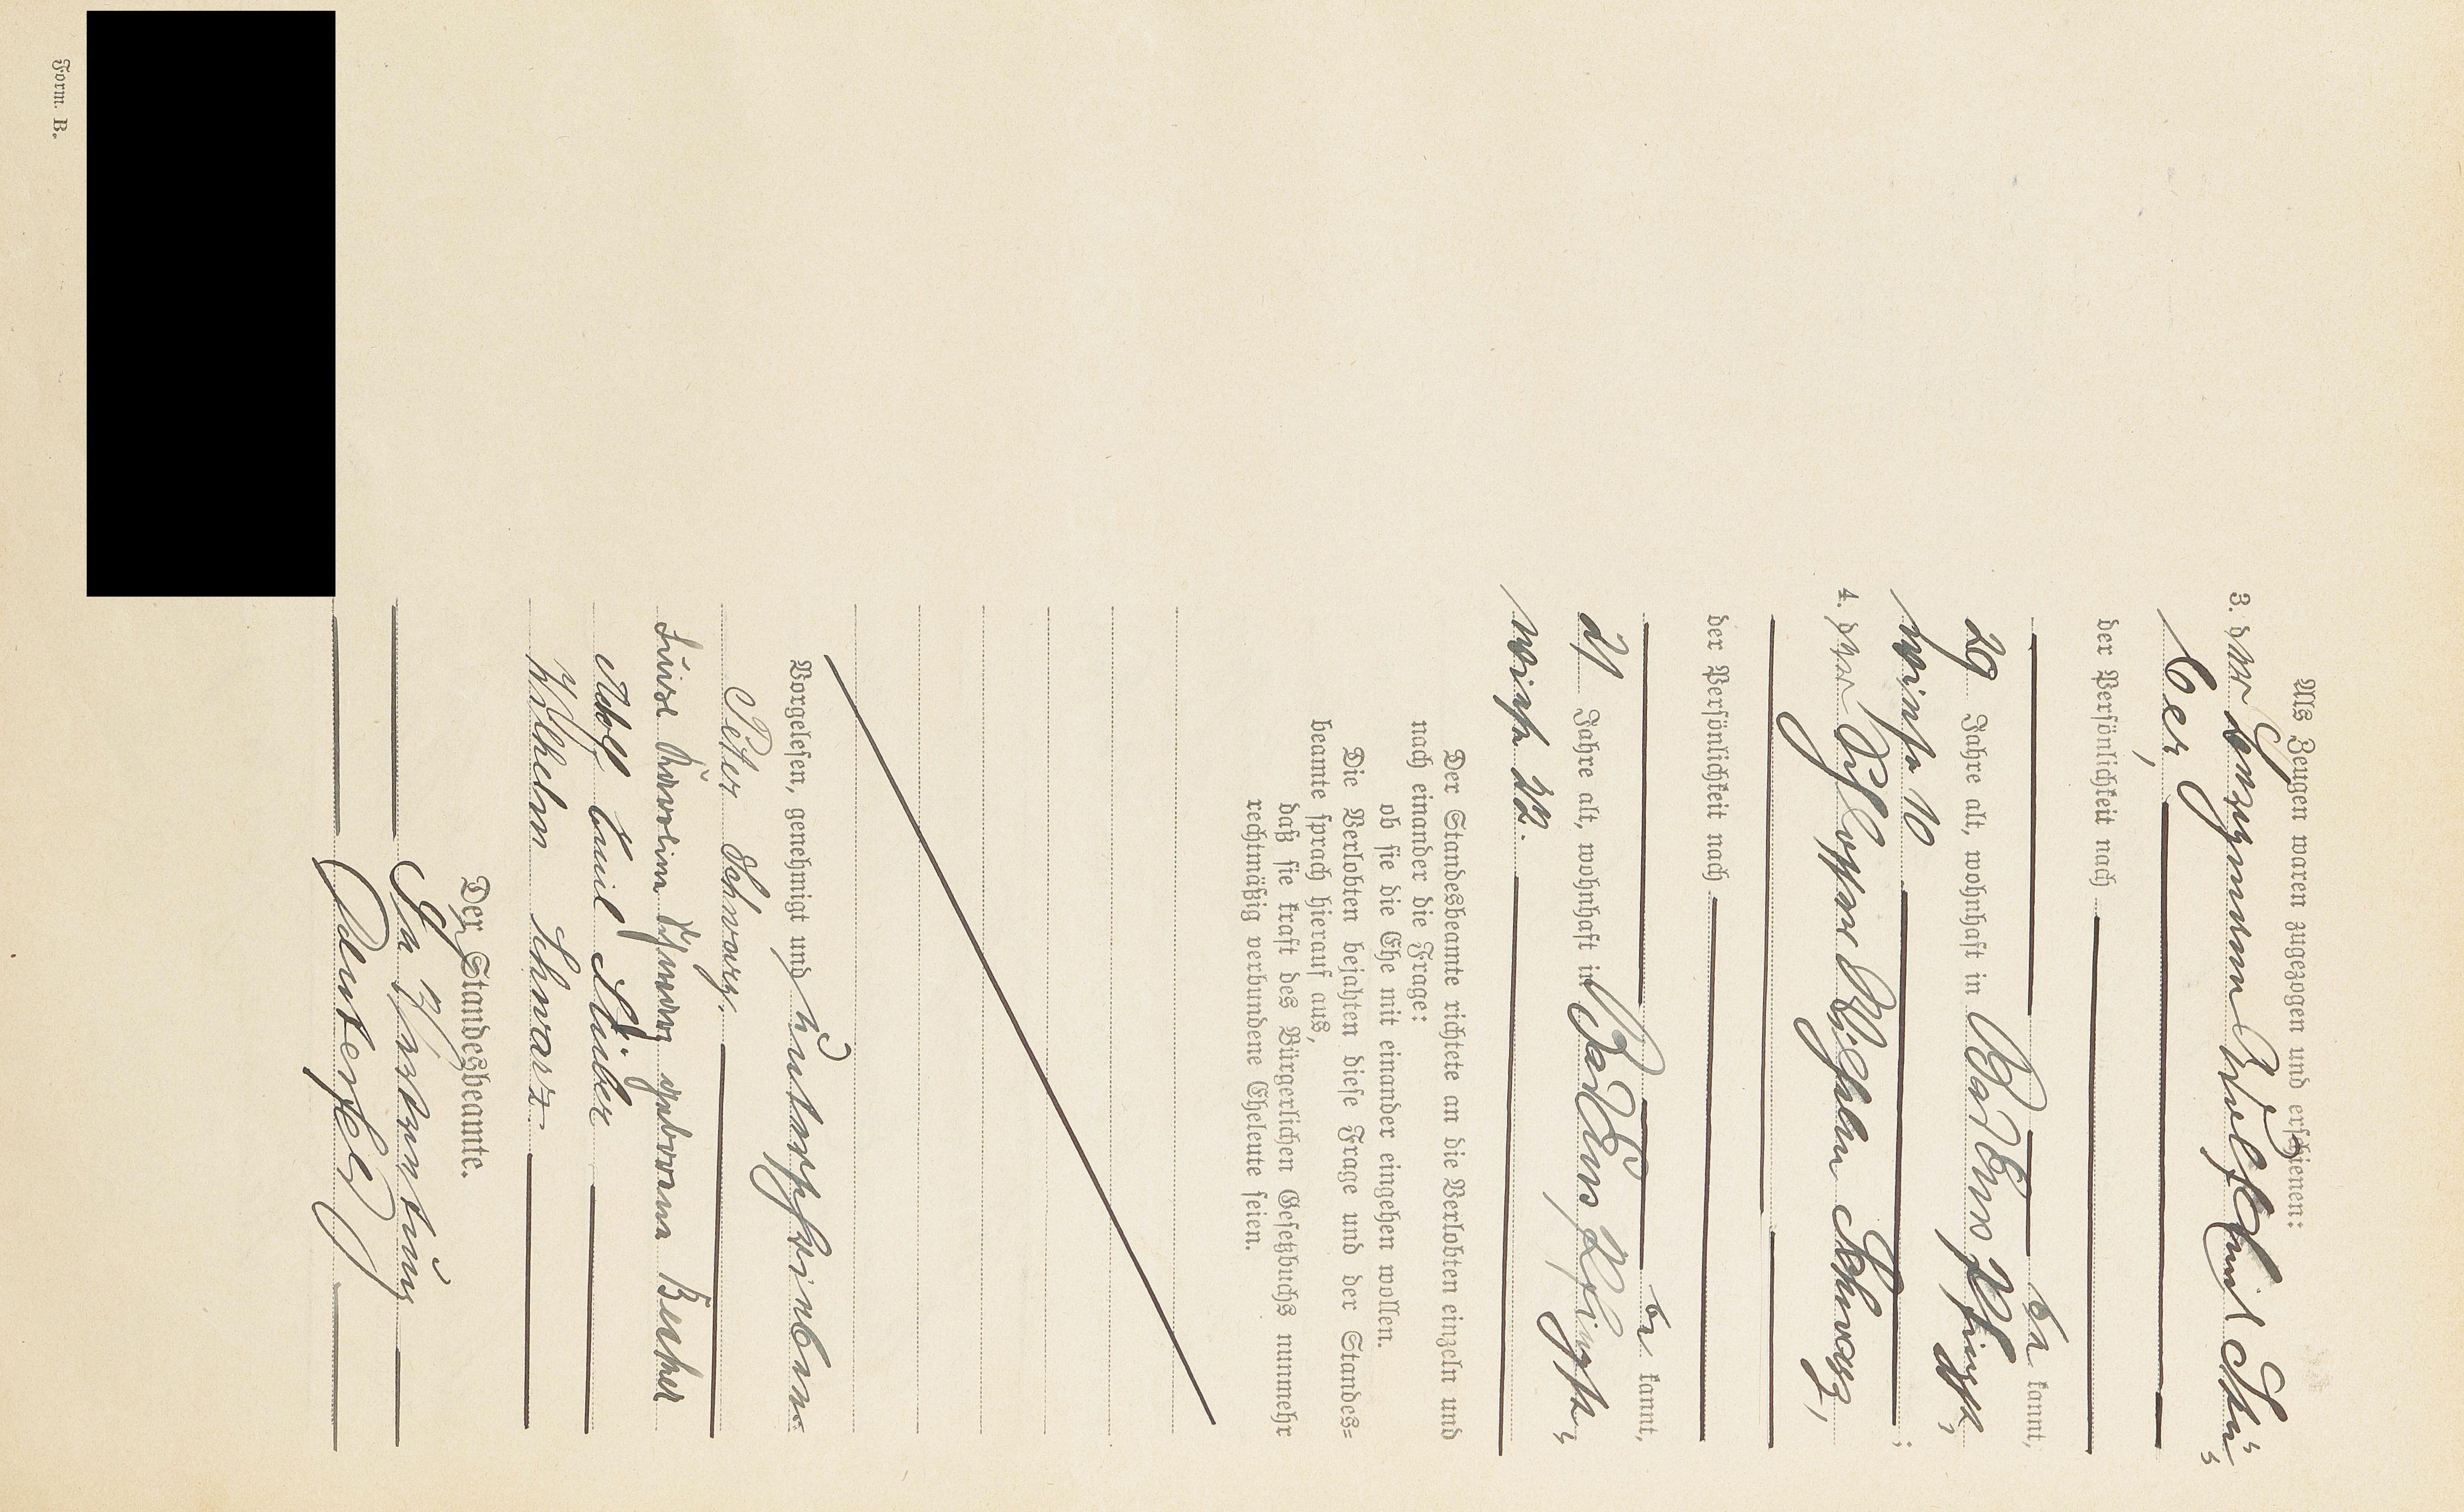 Als Zeugen waren zugezogen und erschienen:
3. der Bergmann Adolf Emil Stü-
ber,
der Persönlichkeit nach
be kannt,
29 Jahre alt, wohnhaft in
10
4. der Schlosser Wilhelm Schwarz,
der Persönlichkeit nach
be kannt,
21 Jahre alt, wohnhaft in
22.
Der Standesbeamte richtete an die Verlobten einzeln und
nach einander die Frage:
ob sie die Ehe mit einander eingehen wollen.
Die Verlobten bejahten diese Frage und der Standes=
beamte sprach hierauf aus,
daß sie kraft des Bürgerlichen Gesetzbuchs nunmehr
rechtmäßig verbundene Eheleute seien.
Vorgelesen, genehmigt und unterschrieben
Peter Schwarz.
Luise Karoline Schwarz geborene Becker
Adolf Emil Stüber
Wilhelm Schwarz
Der Standesbeamte.
In Vertretung
Form. B.